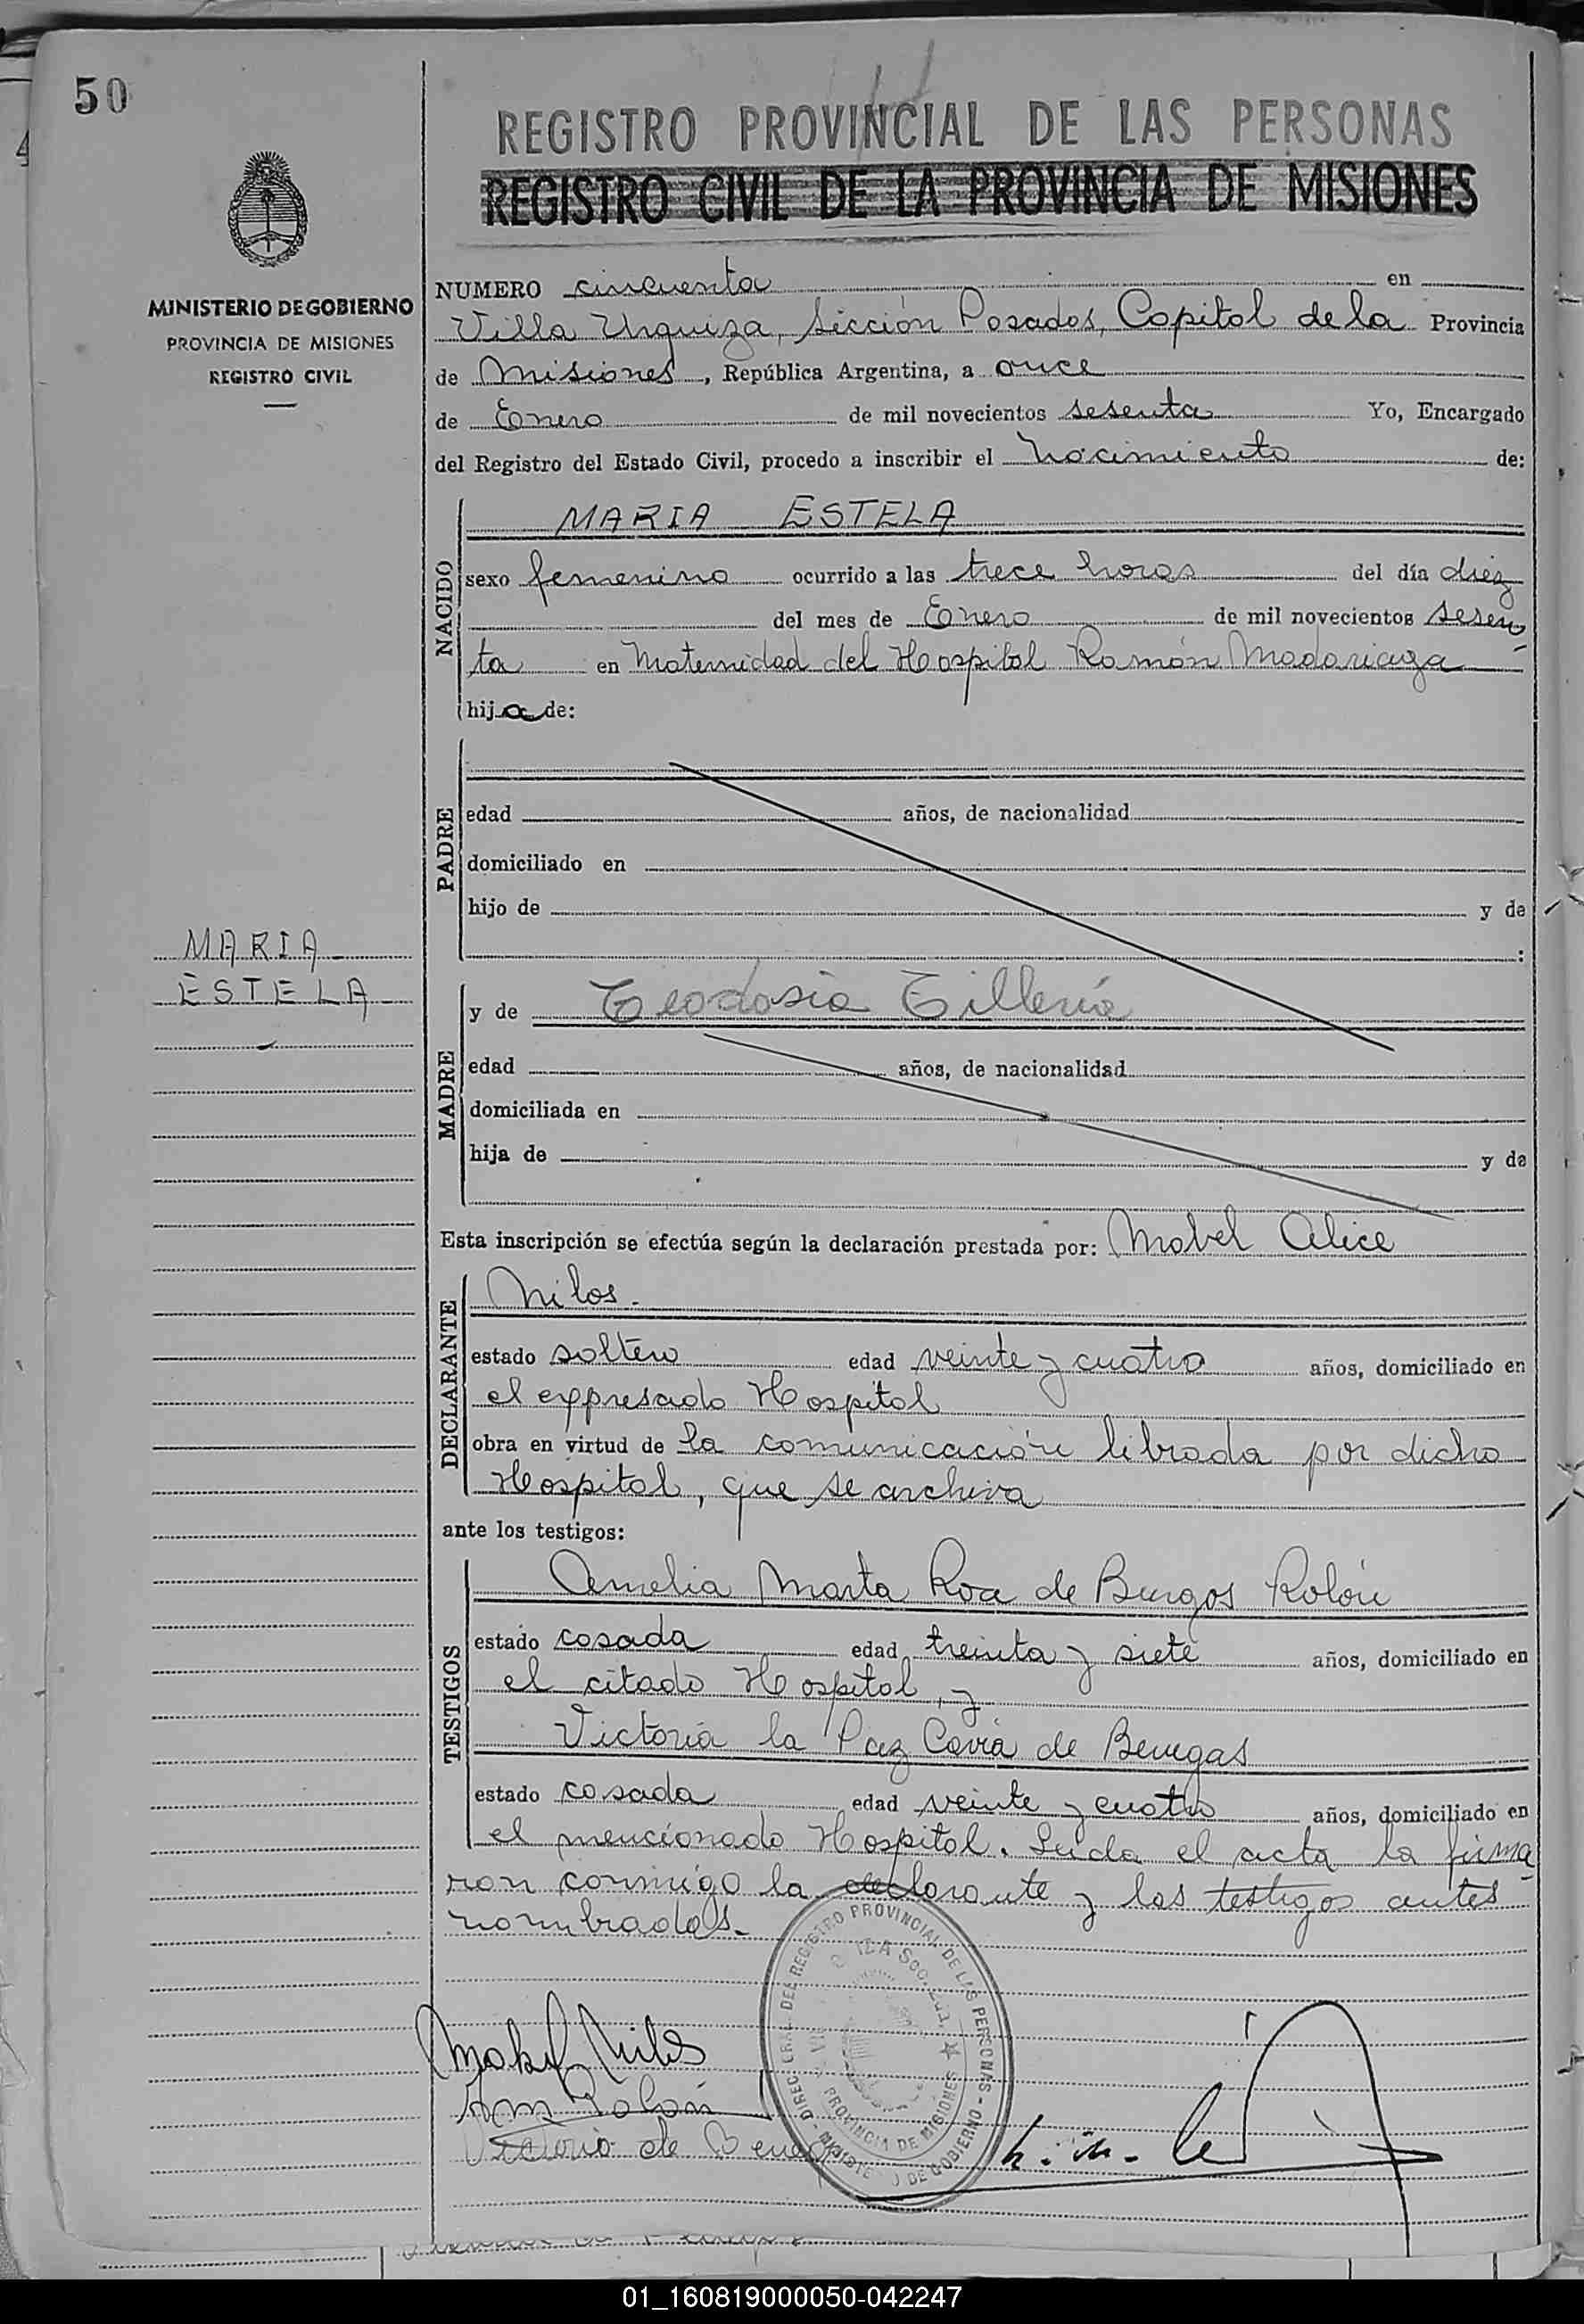 50
REGISTRO PROVINCIAL DE LAS PERSONAS
REGISTRO CIVIL DE LA PROVINCIA DE MISIONES
MINISTERIO DE GOBIERNO
PROVINCIA DE MISIONES
REGISTRO CIVIL
NUMERO cincuenta en
Villa Urquiza, Sección Posadas, Capital de la Provincia
de Misiones, República Argentina, a once
de Enero de mil novecientos sesenta Yo, Encargado
del Registro del Estado Civil, procedo a inscribir el Nacimiento de:
NACIDO
MARIA ESTELA
sexo femenino ocurrido a las trece horas del día diez
del mes de Enero de mil novecientos sesen
ta en Maternidad del Hospital Ramón Madariaga
hija de:
PADRE
edad años, de nacionalidad
domiciliado en
hijo de y de
:
MARIA
ESTELA
MADRE
y de Teodosia Tillería
edad años, de nacionalidad
domiciliada en
hija de y de
Esta inscripción se efectúa según la declaración prestada por: Mabel Alice
DECLARANTE
Nilos.
estado soltera edad veinte y cuatro años, domiciliado en
el expresado Hospital
obra en virtud de la comunicación librada por dicho
Hospital, que se archiva
ante los testigos:
TESTIGOS
Amelia Marta Roa de Burgos Rolón
estado casada edad treinta y siete años, domiciliado en
el citado Hospital, y
Victoria la Paz Cavia de Benegas
estado casada edad veinte y cuatro años, domiciliado en
el mencionado Hospital. Leída el acta la firma
ron conmigo la declarante y los testigos antes
nombrados.-
Mabel Nilos
Rolón
Victoria de
DEL REGISTRO PROVINCIAL DE LAS PERSONAS - DE GOBIERNO
PROVINCIA DE MISIONES
01_160819000050-042247